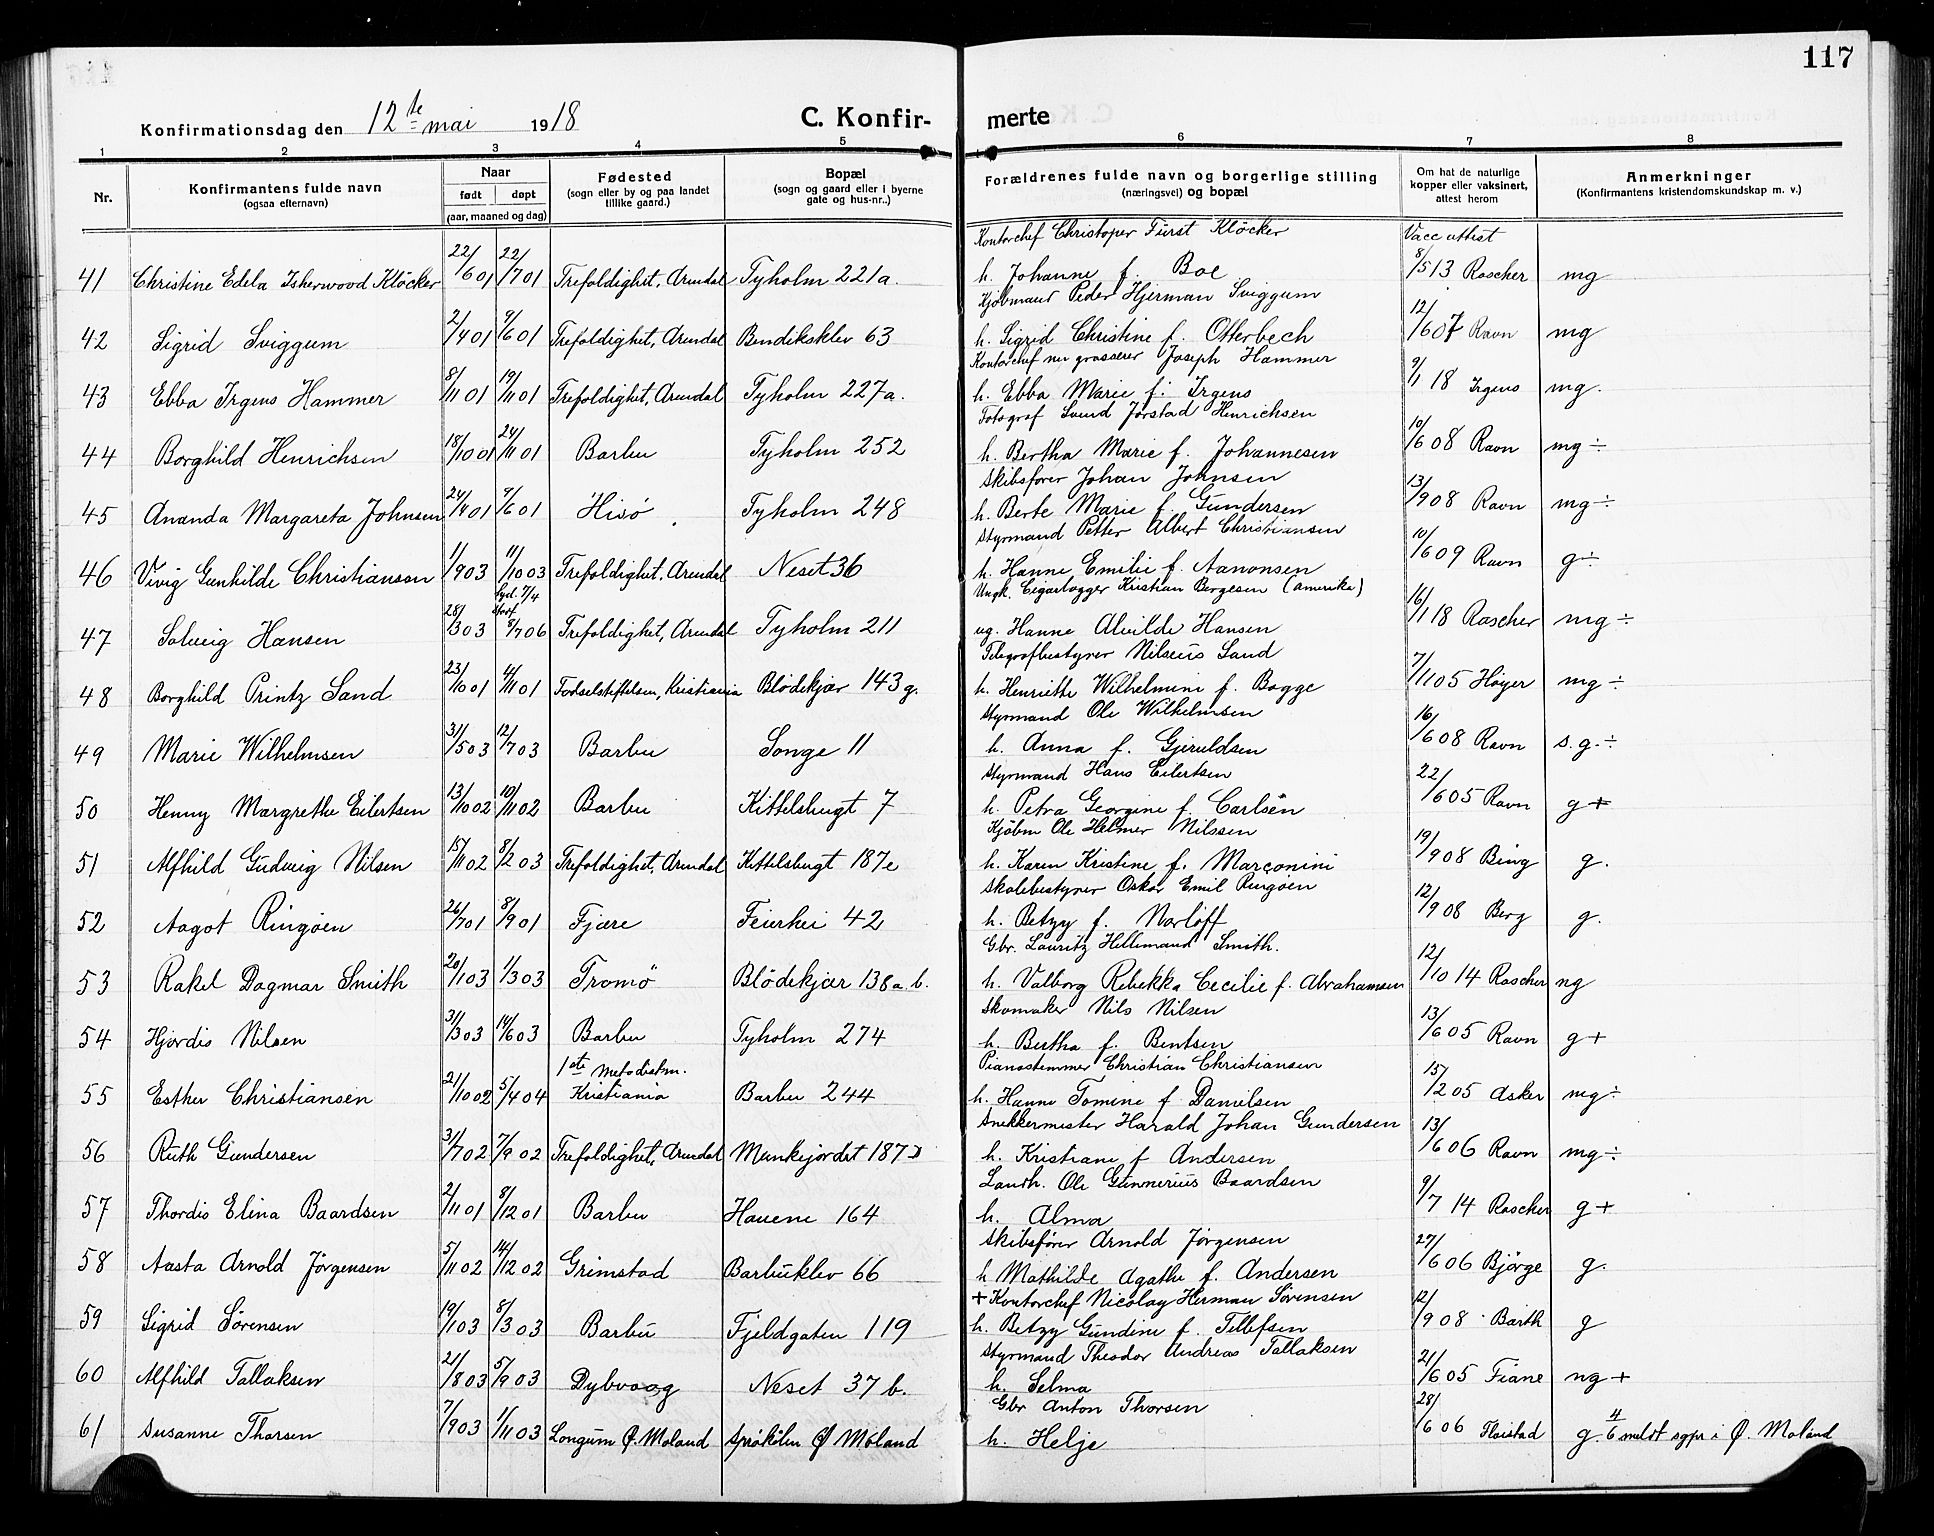 117
Konfirmationsdag den 12te mai 1918 C. Konfir- merte
1 2 3 4 5 6 7 8
Nr. Konfirmantens fulde navn (ogsaa efternavn) Naar født døpt (aar, maaned og dag) Fødested (sogn eller by og paa landet tillike gaard.) Bopæl (sogn og gaard eller i byerne gate og hus-nr..) Forældrenes fulde navn og borgerlige stilling (næringsvei) og bopæl Om hat de naturlige kopper eller vaksinert, attest herom Anmerkninger (Konfirmantens kristendomskundskap m. v.)
Kontorchef Christoper Fürst Kløcker Vacc attest
41 Christine Edela Isherwood Kløcker 22/6 01 22/7 01 Trefoldighet, Arendal Tyholm 221a. h. Johanne f. Boe 8/5 13 Roscher mg
Kjøbmand Peder Hjerman Sviggum
42 Sigrid Sviggum 2/4 01 9/6 01 Trefoldighet, Arendal Bendiksklev 63 h. Sigrid Christine f. Otterbech 12/6 07 Ravn mg
Kontorchef nu grosserer Joseph Hammer
43 Ebba Irgens Hammer 8/11 01 19/11 01 Trefoldighet, Arendal Tyholm 227a. h. Ebba Marie f. Irgens 9/1 18 Irgens mg.
Fotograf Svend Jørstad Henrichsen
44 Borghild Henrichsen 18/10 01 24/11 01 Barbu Tyholm 252 h. Bertha Marie f. Johannesen 10/6 08 Ravn mg ÷
Skibsfører Johan Johnsen
45 Ananda Margareta Johnsen 24/4 01 9/6 01 Hisø Tyholm 248 h. Berte Marie f. Gundersen 13/9 08 Ravn mg ÷
Styrmand Petter Albert Christiansen
46 Vivig Gunhilde Christiansen 1/9 03 11/10 03 Trefoldighet, Arendal Neset 36 h. Hanne Emilie f. Aanonsen 10/6 09 Ravn g ÷
Ungk. Cigarlagger Kristian Bergesen (amerika)
47 Solveig Hansen 28/3 03 8/7 06 Trefoldighet, Arendal Tyholm 211 ug. Hanne Alvilde Hansen 16/1 18 Roscher mg ÷
Telegrafbestyrer Nilseus Sand
48 Borghild Printz Sand 23/10 01 4/11 01 Fødselstiftelsen, Kristiania Blødekjær 143 g. h. Henriette Wilhelmine f. Bagge 7/11 05 Høyer mg ÷
Styrmand Ole Wilhelmsen
49 Marie Wilhelmsen 31/5 03 12/7 03 Barbu Songe 11 h. Anna f. Gjeruldsen 16/6 08 Ravn s.g. ÷
Styrmand Hans Eilertsen
50 Henny Margrethe Eilertsen 13/10 02 10/11 02 Barbu Kittelsbugt 7 h. Petra Georgine f. Carlsen 22/6 05 Ravn g +
Kjøbm Ole Helmer Nilssen
51 Alfhild Gudveig Nilsen 15/11 02 8/2 03 Trefoldighet, Arendal Kittelsbugt 187e h. Karen Kristine f. Marconini 19/9 08 Bing g.
Skolebestyrer Oskar Emil Ringøen
52 Aagot Ringøen 26/7 01 8/9 01 Fjære Feierhei 42 h. Betzy f. Norløff 12/9 08 Berg g.
Gbr. Lauritz Hellemand Smith.
53 Rakel Dagmar Smith 20/1 03 1/3 03 Tromø Blödekjær 138a b. h. Valborg Rebekka Cecilie f. Abrahamsen 12/10 14 Roscher ng
Skomaker Nils Nilsen
54 Hjørdis Nilsen 31/3 03 14/6 03 Barbu Tyholm 274 h. Bertha f. Bentsen 13/6 05 Ravn g +
1ste Metodistm. Pianostemmer Christian Christiansen
55 Esther Christiansen 21/10 02 5/4 04 Kristiania Barbu 244 h. Hanne Tomine f. Danielsen 15/2 05 Asker mg ÷
Snekkermester Harald Johan Gundersen
56 Ruth Gundersen 31/7 02 7/9 02 Trefoldighet, Arendal Munkejordet 187 D h. Kristiane f Andersen 13/6 06 Ravn mg ÷
Landh. Ole Gunnerius Baardsen
57 Thordis Elina Baardsen 2/11 01 8/12 01 Barbu Havene 164 h. Alma 9/7 14 Roscher g +
Skibsfører Arnold Jørgensen
58 Aasta Arnold Jørgensen 5/11 02 14/12 02 Grimstad Barbuklev 66 h Mathilde Agathe f. Andersen 27/6 06 Bjørge g.
+ Kontorchef Nicolay Herman Sørensen
59 Sigrid Sørensen 19/1 03 8/3 03 Barbu Fjeldgaten 119 h. Betzy Gundine f. Tellefsen 12/9 08 Barth g
Styrmand Theodor Andreas Tallaksen
60 Alfhild Tallaksen 21/8 03 5/9 03 Dybvaag Neset 37 b. h. Selma 21/6 05 Fiane ng +
Gbr Anton Thorsen
61 Susanne Thorsen 7/9 03 1/11 03 Longum Ø. Moland Sprøkilen Ø Moland h. Helje 28/6 06 Fløistad g. 4/6 meldt sgpr i Ø. Moland